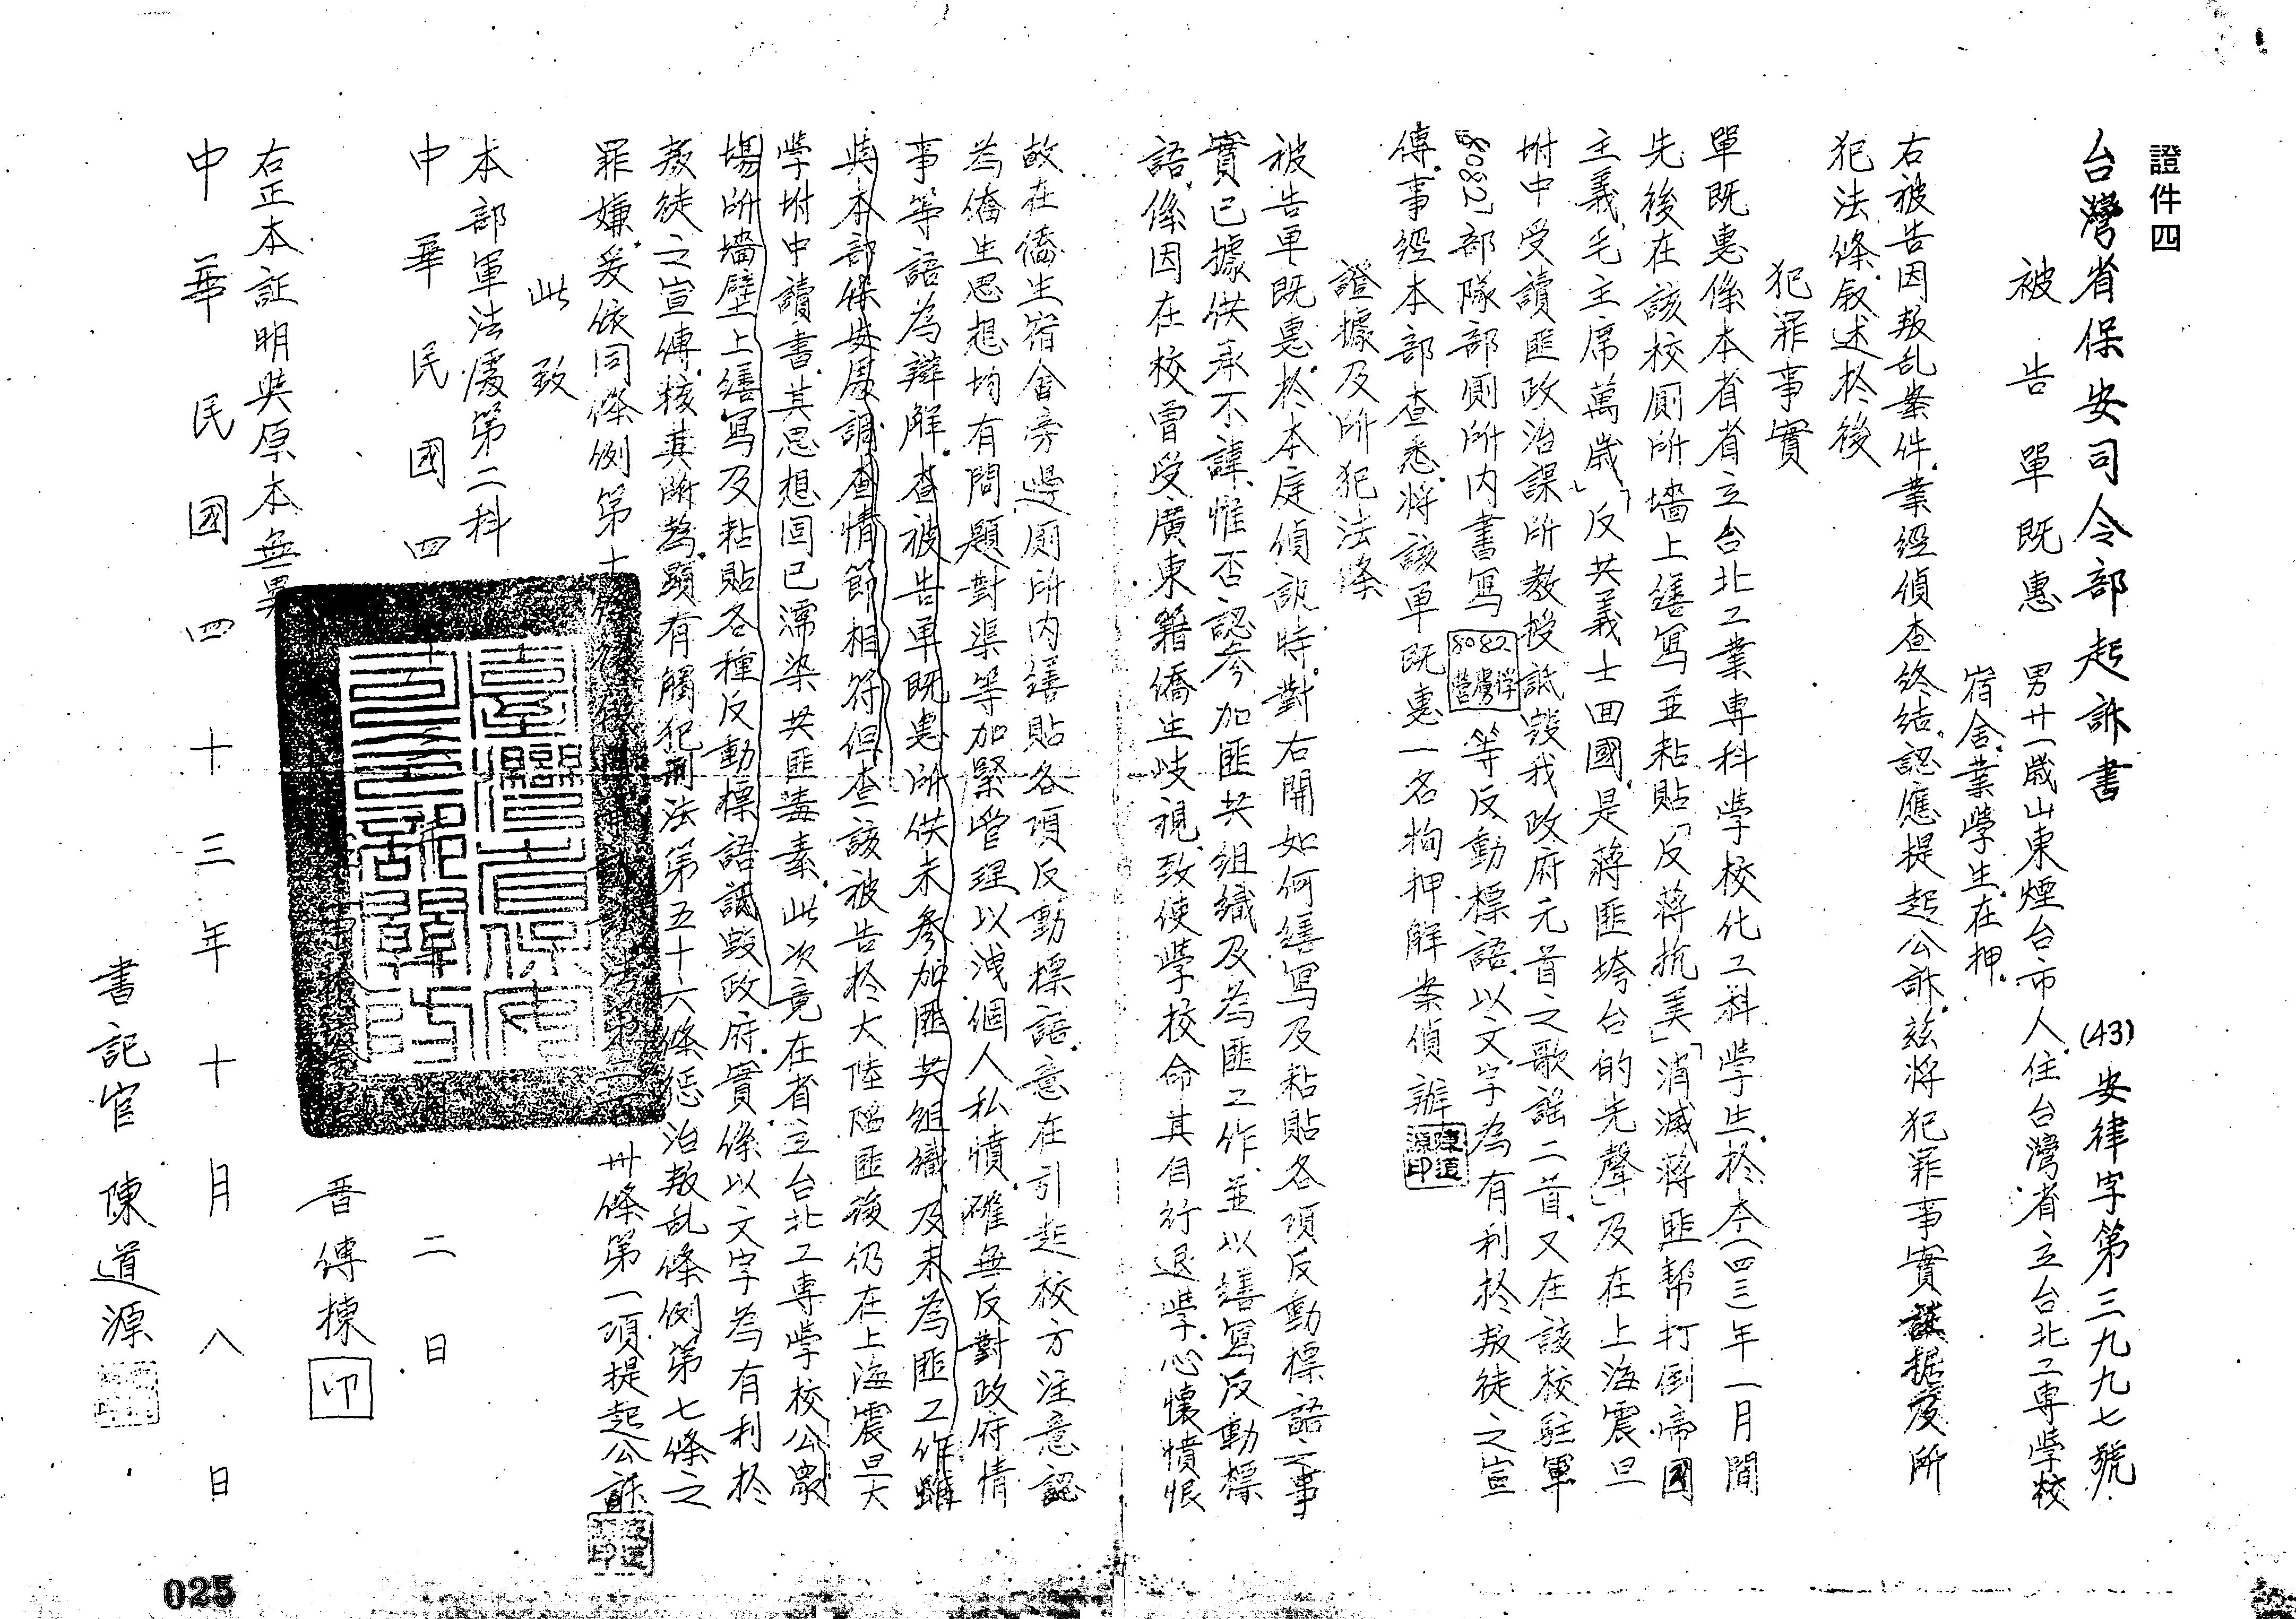 證件四
台灣省保安司令部起訴書
(43)安律字第三九九七號
被告單既惠 男廿一歲山東煙台市人住台灣省立台北工專學校
宿舍業學生在押
右被告因叛乱案件業經偵查終結認應提起公訴茲將犯罪事實證據及所
犯法條叙述於後
犯罪事實
單既惠係本省省立台北工業專科學校化工科學生於本(四三)年一月間
先後在該校厠所墻上繕寫並粘貼「反蔣抗美」「消滅蔣匪幫打倒帝國
主義毛主席萬歲」「反共義士回國是蔣匪垮台的先聲」及在上海震旦
坿中受讀匪政治課所教授詆毀我政府元首之歌謠二首又在該校駐軍
8082部隊部厠所内書寫 8082 等反動標語以文字為有利於叛徒之宣
傳事經本部查悉將該單既惠一名拘押解案偵辦
證據及所犯法條
被告單既惠於本庭偵訊時對右開如何繕寫及粘貼各項反動標語之事
實已據供承不諱惟否認參加匪共組織及為匪工作並以繕寫反動標
語係因在校曾受廣東籍僑生歧視致使學校命其自行退學心懷憤恨
故在僑生宿舍旁邊厠所内繕貼各項反動標語意在引起校方注意認
為僑生思想均有問題對渠等加緊管理以洩個人私憤確無反對政府情
事等語為辯解查被告單既惠所供未參加匪共組織及未為匪工作雖
與本部保安處調查情節相符但查該被告於大陸陷匪後仍在上海震旦大
學坿中讀書其思想固已濡染共匪毒素此次竟在省立台北工專學校公眾
場所墻壁上繕寫及粘貼各種反動標語詆毀政府實係以文字為有利於
叛徒之宣傳核其所為顯有觸犯刑法第五十六條懲治叛乱條例第七條之
罪嫌爰依同條例第十條 卅條第一項提起公訴
此致
本部軍法處第二科
中華民國四 二日
晋傳棟 印
右正本証明與原本無異
中華民國四十三年十月八日
書記官 陳道源
025